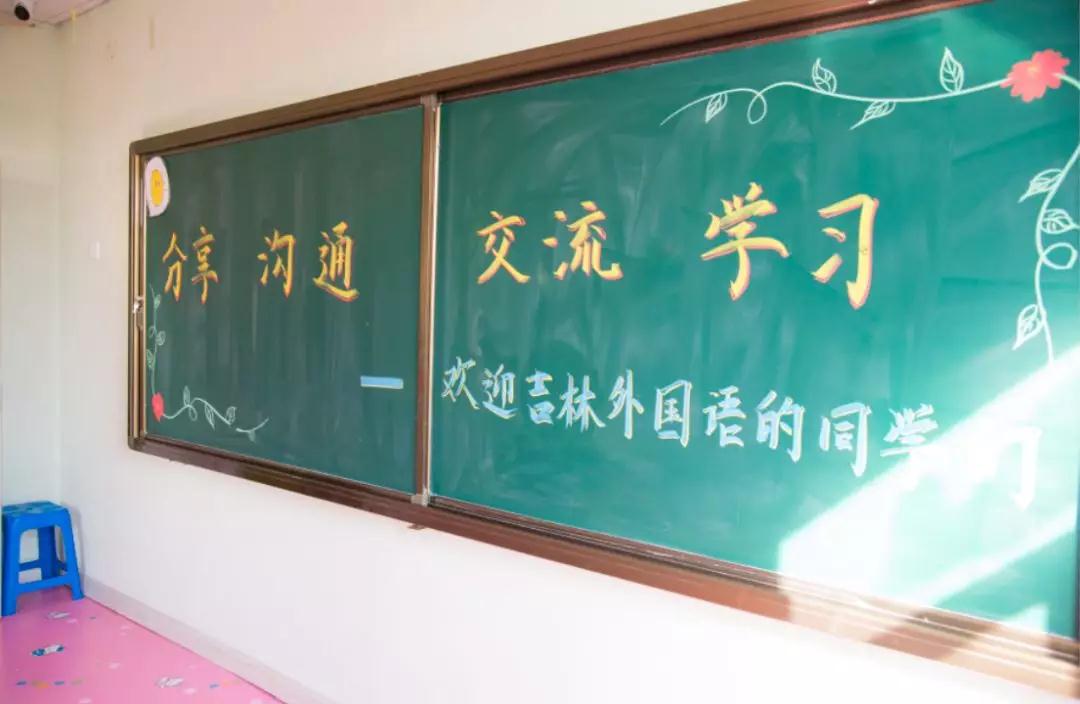 分享 沟通 交流 学习
— 欢迎吉林外国语的同学们